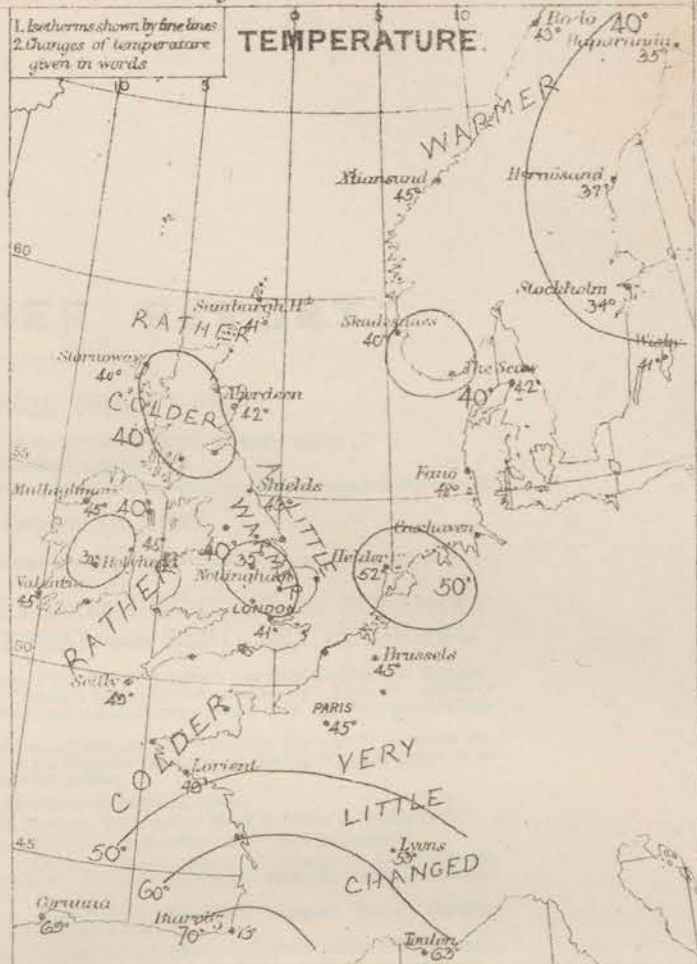 1. Isotherms shown by fine lines
2. Changes of temperature
given in words
TEMPERATURE.
10
5
0
5
10
Bodo
43°
40°
Haparanda
35°
WARMER
Xtiansund
45°
Hernösand
37°
60
Stockholm
34°
Sumburgh Hd
41°
RATHER
Skudesnaes
40°
Wisby
41°
Stornoway
40°
The Scaw
42°
40°
Aberdeen
42°
COLDER
40°
55
Fano
Shields
43°
Mullaghmore
45°
40°
45°
LITTLE
WARMER
Cuxhaven
Holyhead
40°
35°
Helder
52°
50°
Nottingham
Valentia
45°
RATHER
LONDON
41°
50
Brussels
45°
Scilly
49°
PARIS
45°
COLDER
VERY
Lorient
49°
LITTLE
50°
Lyons
55°
45
CHANGED
60°
Corunna
Biarritz
70°
Toulon
63°